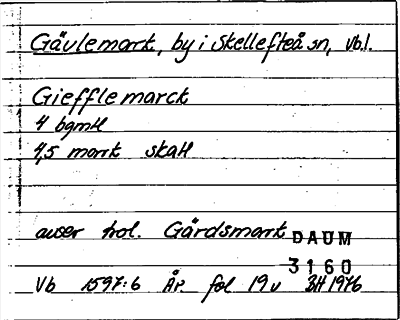 Gävlemark, by i Skellefteå sn, Vbl.
Giefflemarck
4 bgmtl
4,5 mark skatt
avser trol. Gärdsmark
DAUM
3160
Vb 1597:6 År. fol 19v BH 1976